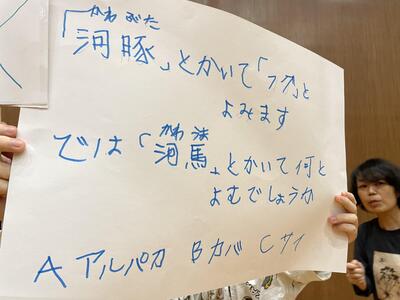 かわ ぶた
「河豚」とかいて「フグ」と
よみます
かわ
では「河馬」とかいて何と
よむでしょうか
A アルパカ B カバ C サイ